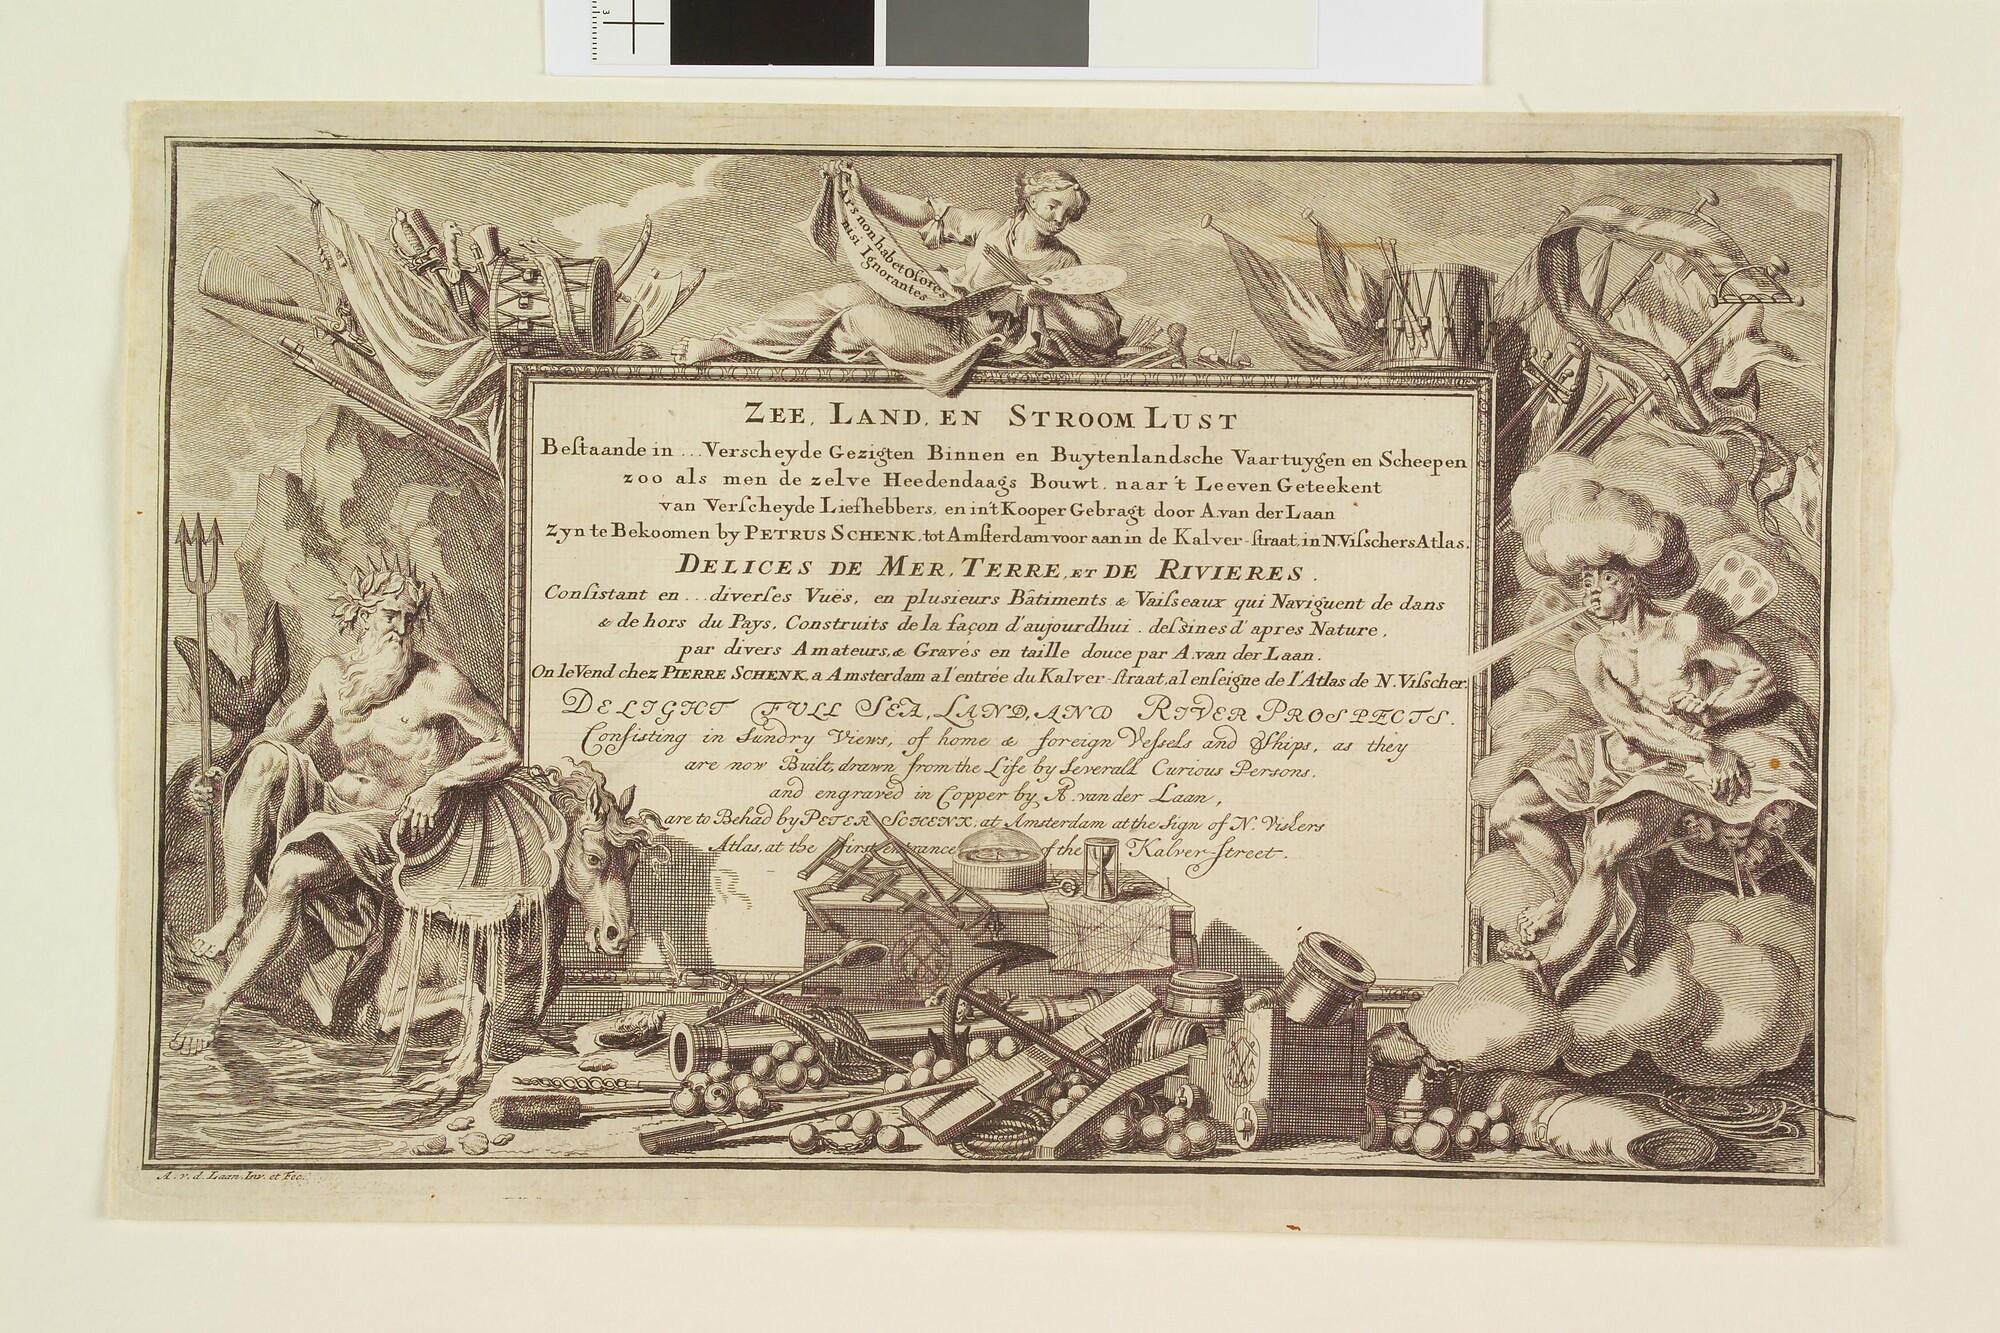 Ars non habet Osores
nisi Ignorantes
ZEE, LAND, EN STROOM LUST
Beſtaande in ... Verscheyde Gezigten Binnen en Buytenlandsche Vaartuygen en Scheepen
zoo als men de zelve Heedendaags Bouwt. naar 't Leeven Geteekent
van Verſcheyde Liefhebbers, en in't Kooper Gebragt door A. van der Laan
Zyn te Bekoomen by PETRUS SCHENK. tot Amſterdam voor aan in de Kalver-ſtraat, in N. Viſschers Atlas.
DELICES DE MER, TERRE, ET DE RIVIERES.
Conſistant en ... diverſes Vuës, en plusieurs Bâtiments & Vaiſseaux qui Naviguent de dans
& de hors du Pays, Construits de la façon d'aujourdhui. deſsines d'apres Nature,
par divers Amateurs, & Gravés en taille douce par A. van der Laan.
On le Vend chez PIERRE SCHENK, a Amsterdam a l'entrée du Kalver-ſtraat, al enſeigne de l'Atlas de N. Viſscher.
DELIGHT FULL SEA, LAND, AND RIVER PROSPECTS.
Conſiſting in Sundry Views, of home & foreign Veſsels and Ships, as they
are now Built, drawn from the Life by Severall Curious Persons.
and engraved in Copper by A. van der Laan,
are to Behad by PETER SCHENK. at Amsterdam at the Sign of N. Viskers
Atlas, at the first entrance of the Kalver-ſtreet.
A. v. d. Laan. Inv. et Fec.